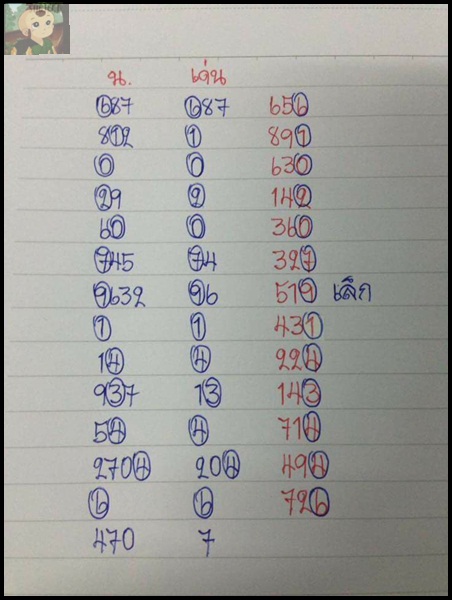 น. เด่น
687 687 656
812 1 891
0 0 630
29 2 142
60 0 360
745 74 327
9632 96 519 เล็ก
1 1 431
14 4 224
937 13 143
54 4 714
2704 204 494
6 6 726
470 7